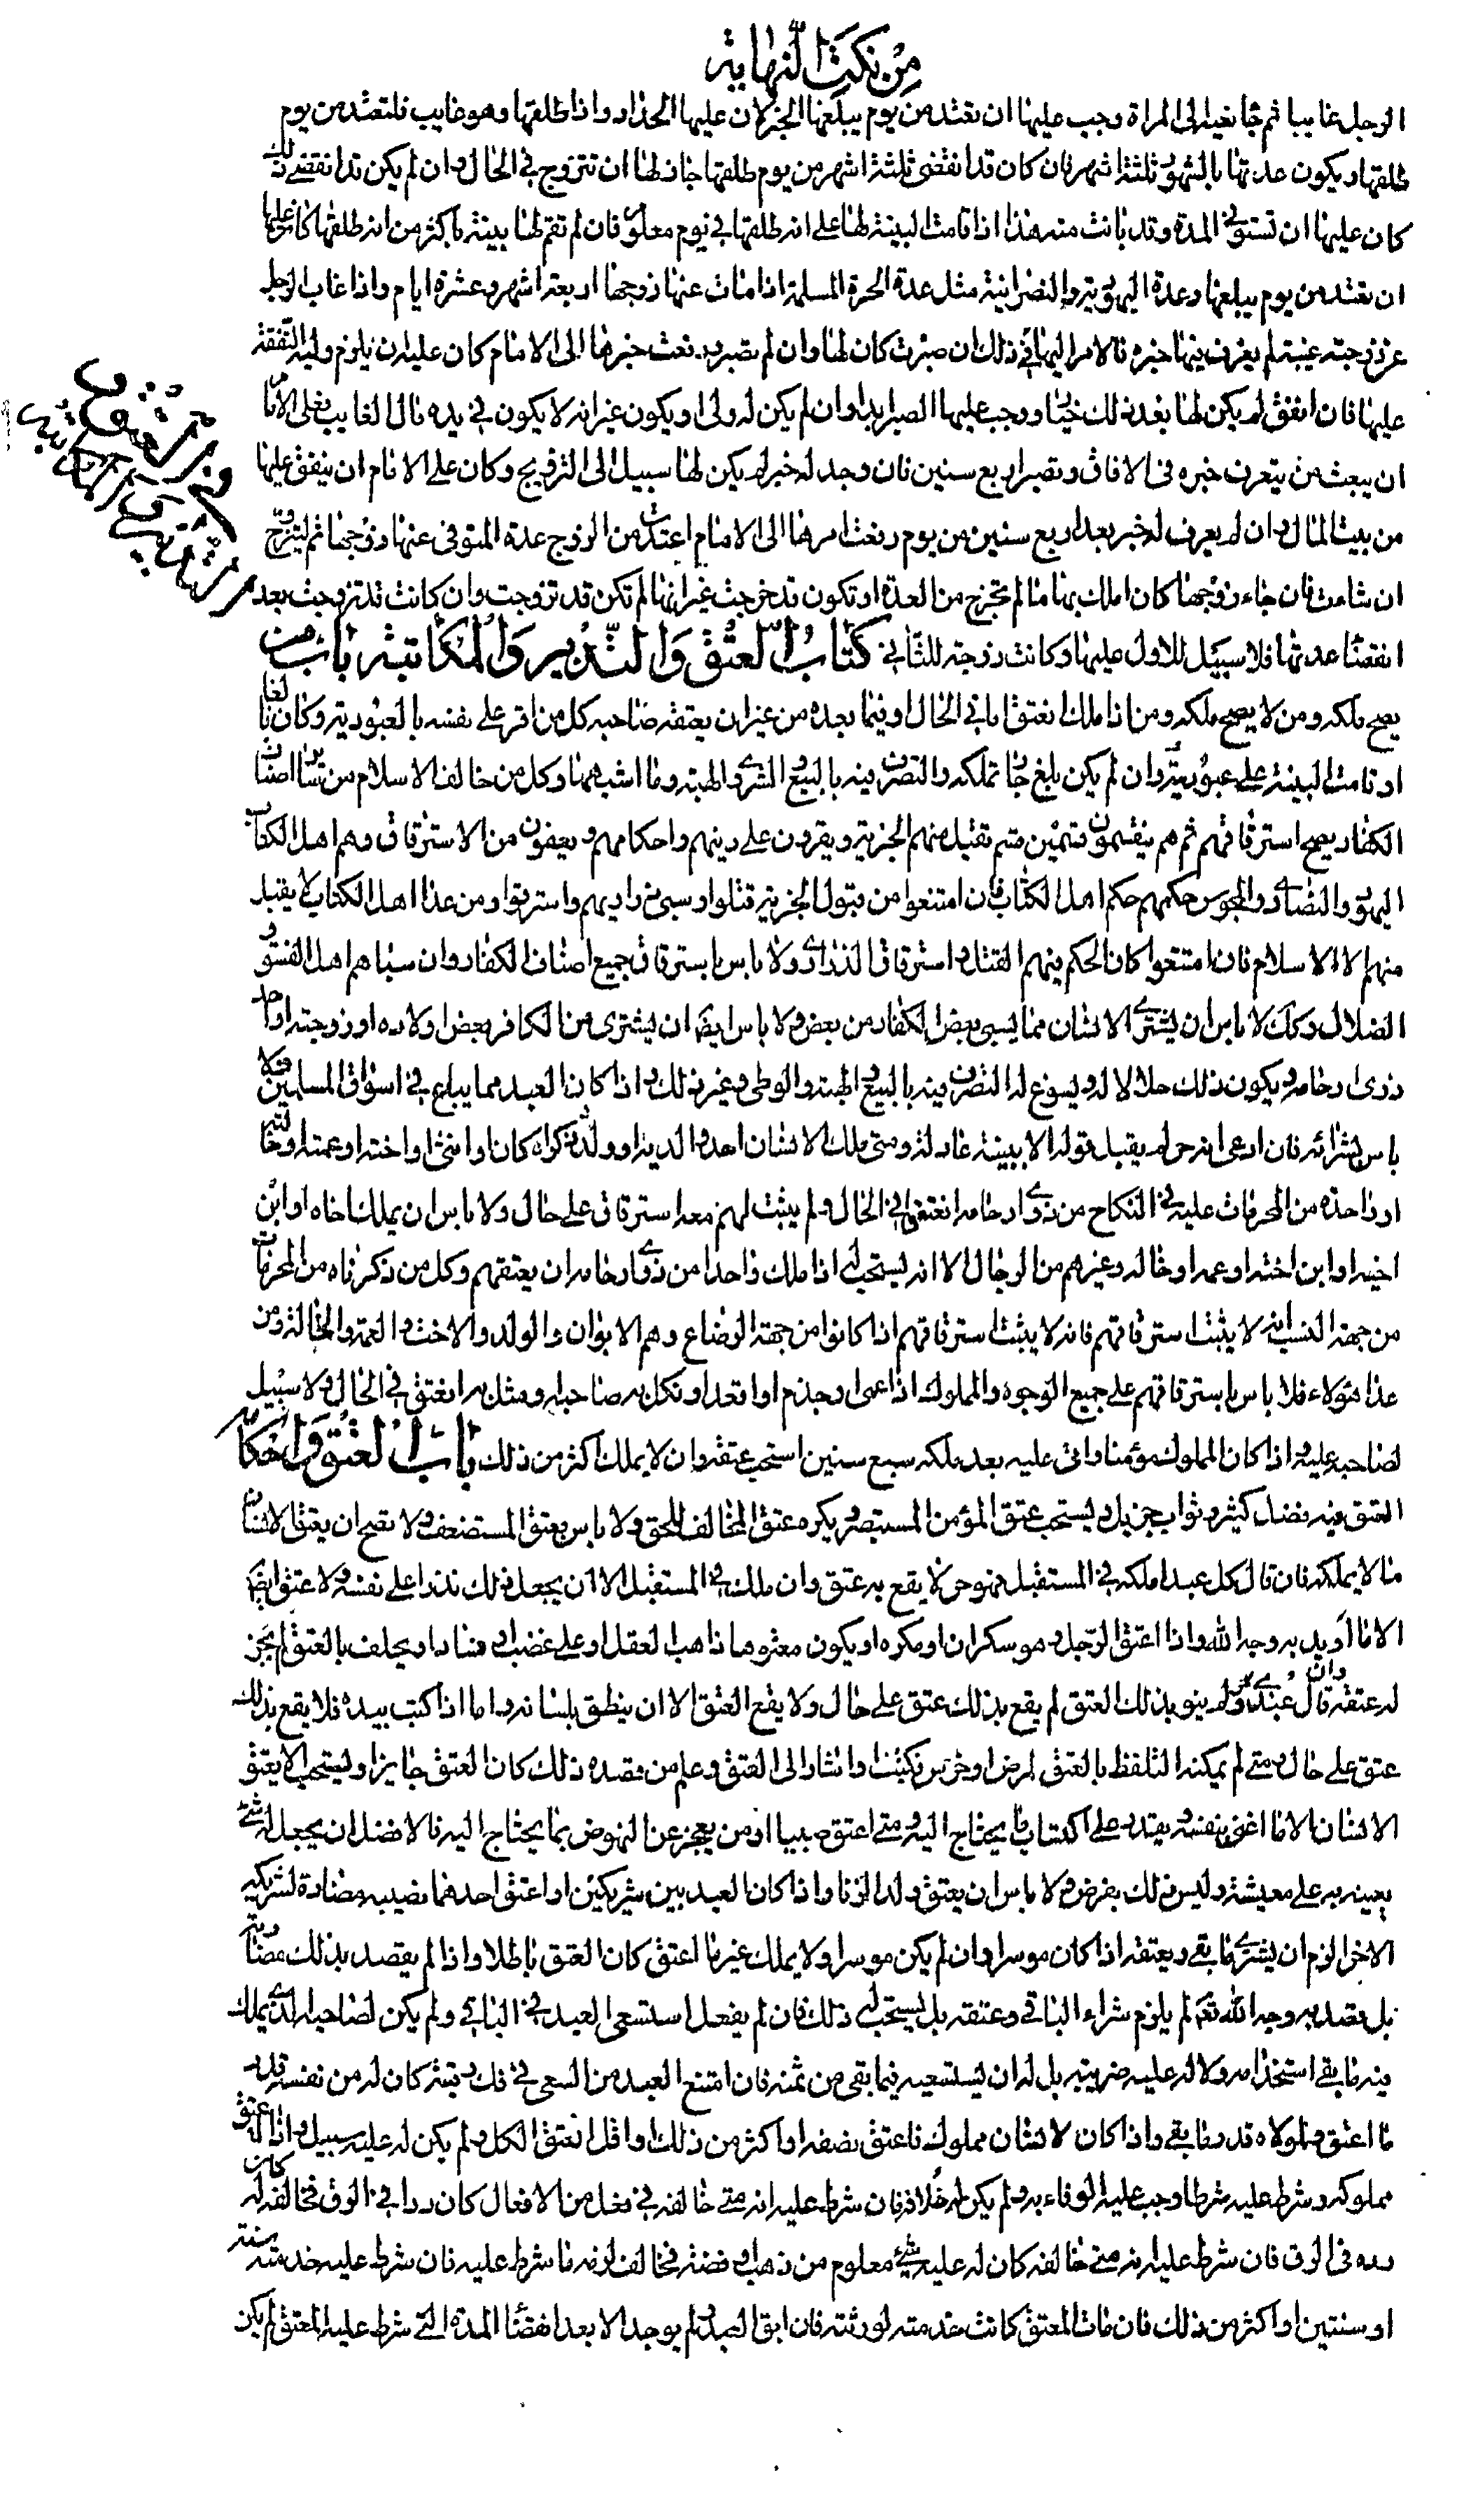 من نكت النهاية
الرجل غايبا ثم جا نعيه الى المراة وجب عليها ان تعتد من يوم يبلغها الخبر لان عليها الحداد واذا طلقها وهو غايب فلتعتد من يوم
طلقها ويكون عدتها بالشهور ثلثة اشهر فان كان قد انقضى ثلثة اشهر من يوم طلقها جاز لها ان تتزوج في الحال وان لم يكن قد انقضى ذلك
كان عليها ان تستوفي المدة وقد بانت منه هذا اذا قامت البينة لها على انه طلقها في يوم معلوم فان لم تقم لها بينة باكثر من انه طلقها كان عليها
ان تعتد من يوم يبلغها وعدة اليهودية والنصرانية مثل عدة الحرة المسلمة اذا مات عنها زوجها اربعة اشهر وعشرة ايام واذا غاب الرجل
عن زوجته غيبة لم يعرف فيها خبره فالامر اليها في ذلك ان صبرت كان لها وان لم تصبر ورفعت خبرها الى الامام كان عليه ان يلزم وليه النفقة
عليها فان انفق لم يكن لها بعد ذلك خيار ووجب عليها الصبر ابدا وان لم يكن له ولى او يكون غير انه لا يكون في يده مال الغايب فعلى الامام
ان يبعث من يتعرف خبره فى الافاق وتصبر اربع سنين فان وجد له خبر لم يكن لها سبيل الى التزويج وكان على الامام ان ينفق عليها
من بيت المال وان لم يعرف له خبر بعد اربع سنين من يوم رفعت امرها الى الامام اعتدت من الزوج عدة المتوفى عنها زوجها ثم لتتزوج
ان شاءت فان جاء زوجها كان املك بها ما لم تخرج من العدة او تكون قد خرجت غير انها لم تكن قد تزوجت وان كانت قد تزوجت بعد
انقضا عدتها فلا سبيل للاول عليها وكانت زوجة للثاني كتاب العتق والتدبير والمكاتبة باب من
يصح ملكه ومن لا يصح ملكه ومن اذا ملك انعتق اما في الحال او فيما بعده من غير ان يعتقه صاحبه كل من اقر على نفسه بالعبودية وكان بالغا
او قامت البينة على عبوديته وان لم يكن بلغ جاز تملكه والتصرف فيه بالبيع والشرى والهبة وما اشبههما وكل من خالف الاسلام من ساير اصناف
الكفار يصح استرقاقهم ثم هم ينقسمون قسمين قسم تقبل منهم الجزية ويقرون على دينهم واحكامهم ويعفون من الاسترقاق وهم اهل الكتاب
اليهود والنصارى والمجوس حكمهم حكم اهل الكتاب فان امتنعوا من قبول الجزية قتلوا وسبى ذراريهم واسترقوا ومن عدا اهل الكتاب لا يقبل
منهم الا الاسلام فان امتنعوا كان الحكم فيهم القتل واسترقاق الذرارى ولا باس باسترقاق جميع اصناف الكفار وان سباهم اهل الفسوق و
الضلال وكذلك لا باس ان يشترى الانسان مما يسبى بعض الكفار من بعض ولا باس ايضا ان يشترى من الكافر بعض اولاده او زوجته او احد
ذوى ارحامه ويكون ذلك حلالا له ويسوغ له التصرف فيه بالبيع والهبة والوطى وغير ذلك واذا كان العبد مما يباع في اسواق المسلمين فلا
باس بشرائه فان ادعى انه حر لم يقبل قوله الا ببينة عادلة ومتى ملك الانسان احد والديه او ولده ذكرا كان او انثى او اخته او عمته او خالته
او واحدة من المحرمات عليه في النكاح من ذوى ارحامه انعتقوا في الحال ولم يثبت لهم معه استرقاق على حال ولا باس ان يملك اخاه او ابن
اخيه او ابن اخته او عمه او خاله وغيرهم من الرجال الا انه يستحب له اذا ملك واحدا من ذوى ارحامه ان يعتقهم وكل من ذكرناه من المحرمات
من جهة النسب انه لا يثبت استرقاقهم فانه لا يثبت استرقاقهم اذا كانوا من جهة الرضاع وهم الابوان والولد والاخت والعمة والخالة ومن
عدا هؤلاء فلا باس باسترقاقهم على جميع الوجوه والمملوك اذا عمى او جذم او اقعد او نكل به صاحبه او مثل به انعتق في الحال ولا سبيل
لصاحبه عليه واذا كان المملوك مؤمنا واتى عليه بعد ملكه سبع سنين استحب عتقه وان لا يملك اكثر من ذلك باب العتق واحكامه
العتق فيه فضل كثير وثواب جزيل ويستحب عتق المؤمن المستبصر ويكره عتق المخالف للحق ولا باس بعتق المستضعف ولا يصح ان يعتق الانسان
ما لا يملكه فان قال كل عبد املكه في المستقبل فهو حر لا يقع به عتق وان ملك في المستقبل الا ان يجعل ذلك نذرا على نفسه ولا عتق ايضا
الا ما اريد به وجه الله واذا اعتق الرجل وهو سكران او مكره او يكون معتوها ذاهب العقل او على غضب او فساد او يحلف بالعتق لم يجز
وان
له عتقه قال عبدى حر ولم ينو بذلك العتق لم يقع بذلك عتق على حال ولا يقع العتق الا ان ينطق بلسانه واما اذا كتب بيده فلا يقع بذلك
عتق على حال ومتى لم يمكنه التلفظ بالعتق لمرض او خرس فكتب او اشار الى العتق وعلم من قصده ذلك كان العتق جايزا ويستحب الا يعتق
الانسان الا ما اغنى نفسه ويقتدر على اكتساب ما يحتاج اليه ومتى اعتق صبيا او من يعجز عن النهوض بما يحتاج اليه فالافضل ان يجعل له شئ
يعينه به على معيشته وليس ذلك بفرض ولا باس ان يعتق ولد الزنا واذا كان العبد بين شريكين واعتق احدهما نصيبه مضارة لشريكه
الاخر الزم ان يشترى ما بقى ويعتقه اذا كان موسرا وان لم يكن موسرا ولا يملك غير ما اعتق كان العتق باطلا واذا لم يقصد بذلك مضارته
بل قصد به وجه الله تعالى لم يلزم شراء الباقي وعتقه بل يستحب له ذلك فان لم يفعل استسعى العبد في الباقي ولم يكن لصاحبه الذى يملك
منه ما بقى استخدامه ولا له عليه ضريبة بل له ان يستسعيه فيما بقى من ثمنه فان امتنع العبد من السعى في فك رقبته كان له من نفسه قدر
ما اعتق ولمولاه قدر ما بقى واذا كان لانسان مملوك فاعتق نصفه او اكثر من ذلك او اقل انعتق الكل ولم يكن له عليه سبيل واذا اعتق
مملوكه وشرط عليه شرطا وجب عليه الوفاء به ولم يكن له خلافه فان شرط عليه انه متى خالفه في فعل من الافعال كان ردا في الرق فخالفه كان له
رده فى الرق فان شرط عليه انه متى خالفه كان له عليه شئ معلوم من ذهب او فضة فخالف لزمه ما شرط عليه فان شرط عليه خدمته سنة
او سنتين او اكثر من ذلك فان مات المعتق كانت خدمته لورثته فان ابق العبد ولم يوجد الا بعد انقضا المدة التى شرط عليه المعتق لم يكن